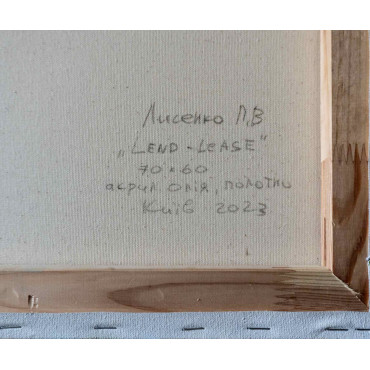 Лисенко П.В
„LEND-LEASE"
70×60
акрил олія, полотно
Київ 2023